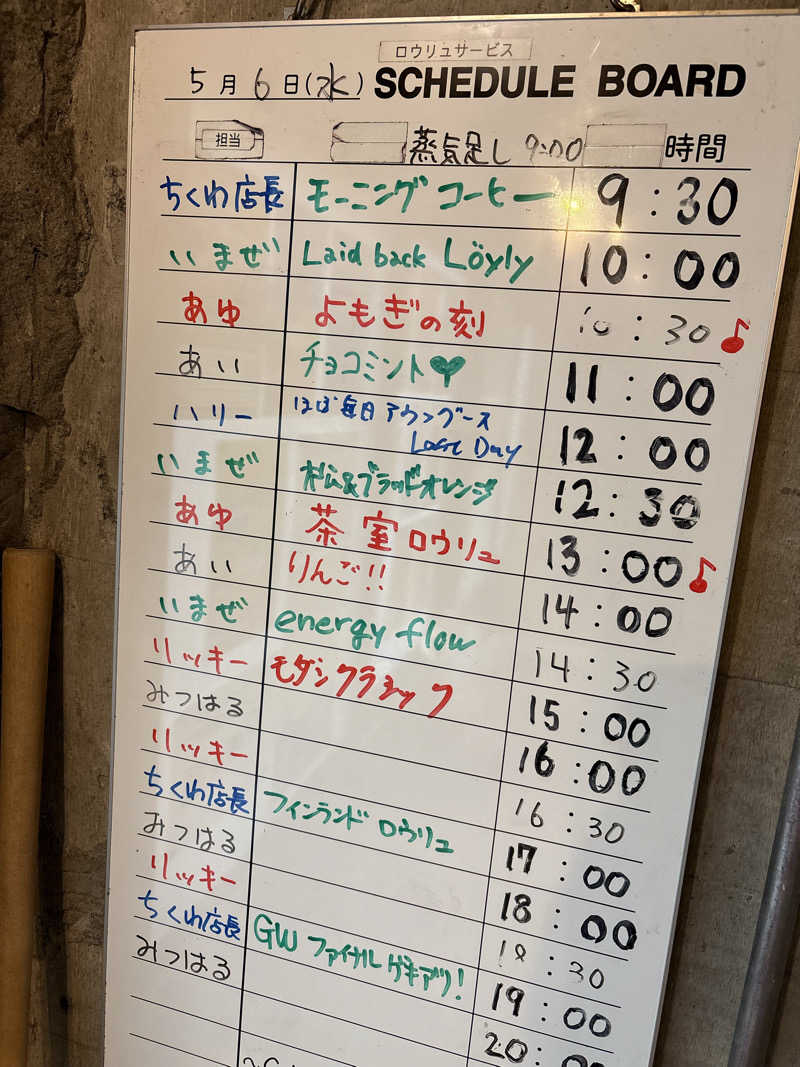 ロウリュサービス
5月6日(水) SCHEDULE BOARD
担当 蒸気足し 9:00 時間
ちくわ店長 モーニングコーヒー 9:30
いまぜ Laid back Löyly 10:00
あゆ よもぎの刻 10:30
あい チョコミント 11:00
ハリー ほぼ毎日アウフグース 12:00
Last Day
いまぜ 松&ブラッドオレンジ 12:30
あゆ 茶室ロウリュ 13:00
あい りんご!! 14:00
いまぜ energy flow 14:30
リッキー モダンクラシック 15:00
みつはる 16:00
リッキー 16:30
ちくわ店長 フィンランドロウリュ 17:00
みつはる 18:00
リッキー 18:30
ちくわ店長 GWファイナルゲキアツ! 19:00
みつはる 20:00